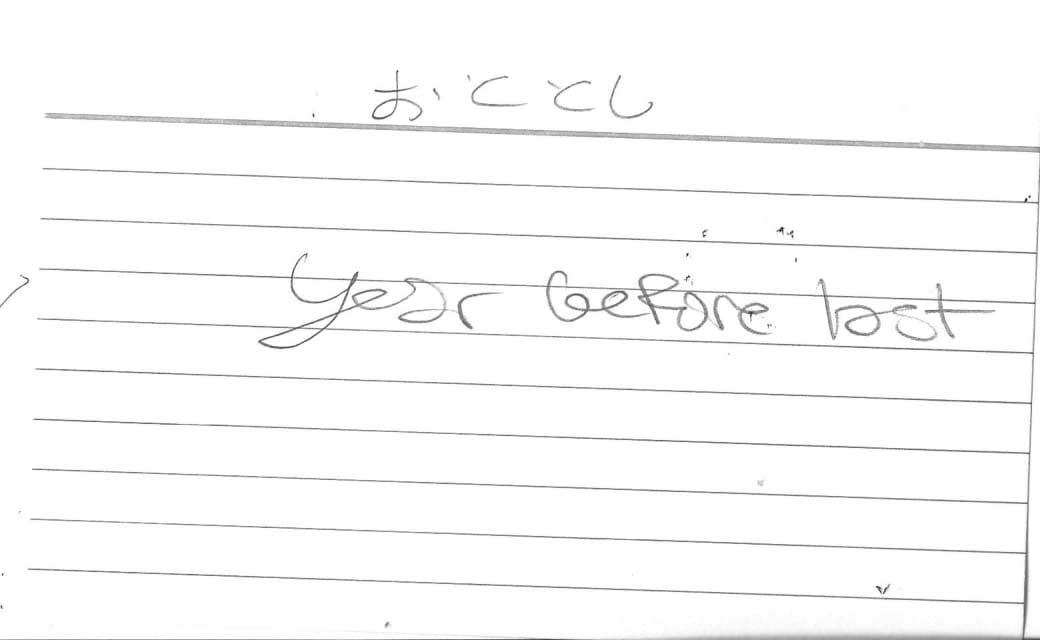 おととし
year before last